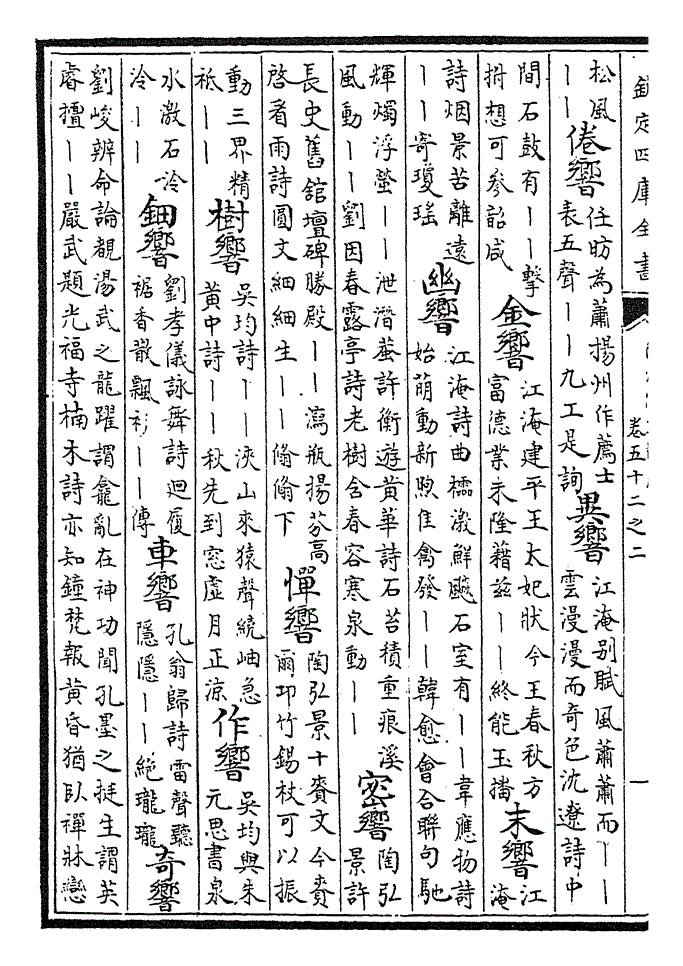 欽定四庫全書
卷五十二之二
一
松風
——
倦響
任昉為蕭揚州作薦士
表五聲——九工是詢
異響
江淹别賦風蕭蕭而——
雲漫漫而奇色沈遼詩中
間石鼓有——擊
拊想可参韶咸
金響
江淹建平王太妃狀今王春秋方
富德業未隆藉兹——終能玉播
末響
江
淹
詩烟景苦離遠
——寄瓊瑶
幽響
江淹詩曲櫺激鮮飈石室有——韋應物詩
始萌動新煦佳禽發——韓愈會合聯句馳
輝燭浮螢——泄潛蛬許衡遊黄華詩石苔積重痕溪
風動——劉因春露亭詩老樹含春容寒泉動——
密響
陶弘
景許
長史舊館壇碑勝殿——瀉瓶揚芬高
啓看雨詩圓文細細生——翛翛下
憚響
陶弘景十賚文今賚
爾邛竹錫杖可以振
動三界精
祇——
樹響
吳均詩——浹山來猿聲繞岫急
黄中詩——秋先到窓虚月正涼
作響
吳均與朱
元思書泉
水激石泠
泠——
鈿響
劉孝儀詠舞詩迴履
裾香散飄衫——傳
車響
孔翁歸詩雷聲聽
隠隠——絶瓏瓏
奇響
劉峻辨命論覩湯武之龍躍謂龕亂在神功聞孔墨之挺生謂英
睿擅——嚴武題光福寺楠木詩亦知鐘梵報黄昏猶臥禪牀戀